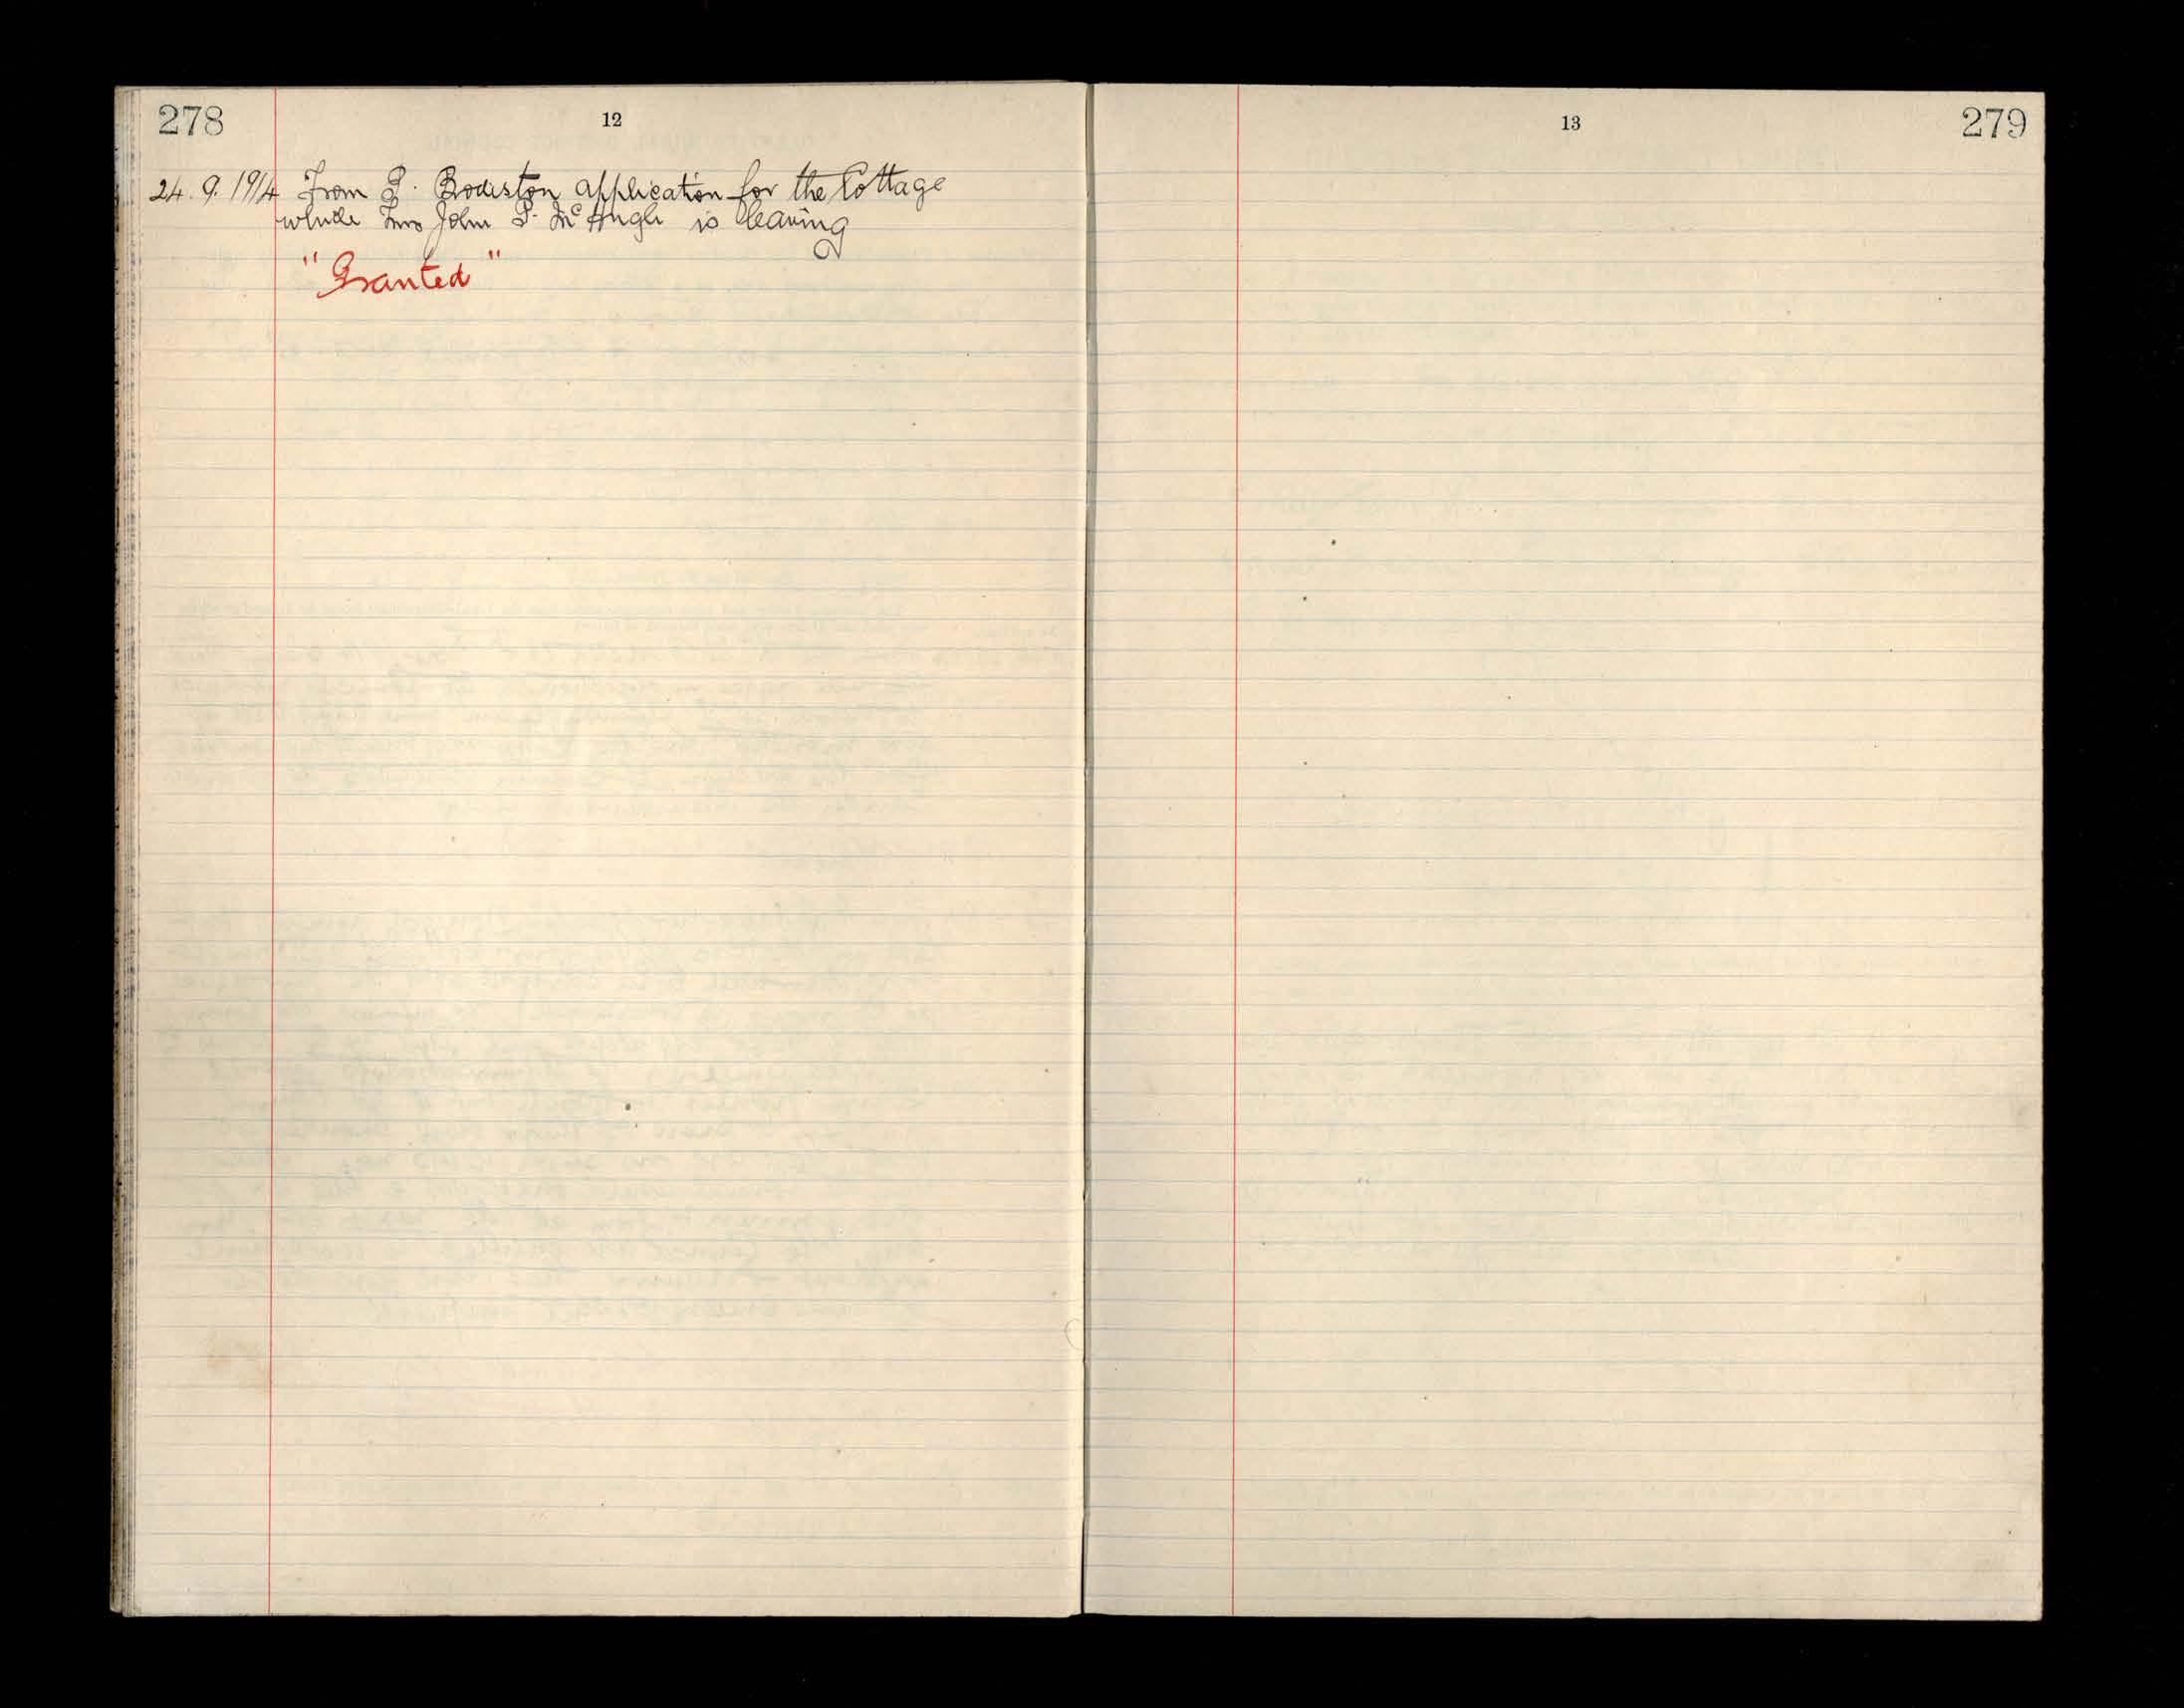 278
12
24.9.1914 From Rodiston application for the Cottage
which Mrs John McHugh is leaving
"Granted"
13
279